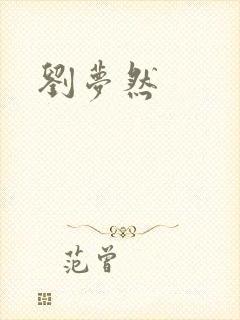 劉夢然
范曾